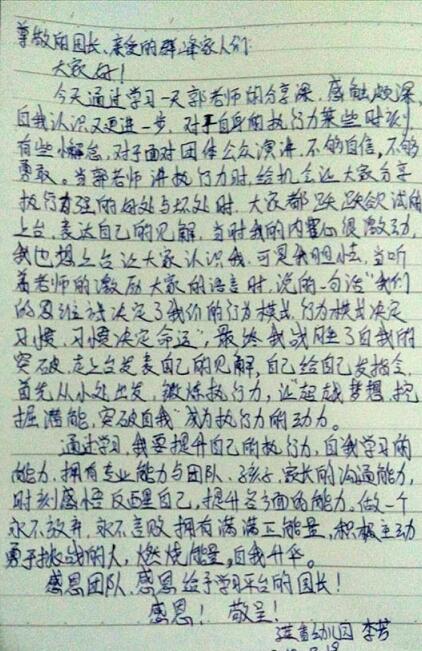 尊敬的园长、亲爱的群峰家人们:
大家好!
今天通过学习一天郭老师的分享课,感触颇深,
自我认识又更进一步,对于自身的执行力某些时刻
有些懈怠,对于面对团体公众演讲,不够自信,不够
勇敢。当郭老师讲执行力时,给机会让大家分享
执行力强的好处与坏处时,大家都跃跃欲试的
上台,表达自己的见解,当时我的内心很激动,
我也想上台让大家认识我,可是我胆怯,当听
着老师的激励大家的语言时,说的一句话“我们
的思维决定了我们的行为模式,行为模式决定
习惯,习惯决定命运”,最终我战胜了自我的
突破,走上台发表自己的见解,自己给自己发指令,
首先从小处出发,锻炼执行力,让“超越梦想,挖
掘潜能,突破自我”成为执行力的动力。
通过学习,我要提升自己的执行力,自我学习的
能力,拥有专业能力与团队、孩子、家长的沟通能力,
时刻感悟反醒自己,提升各方面的能力。做一个
永不放弃,永不言败,拥有满满正能量,积极主动
勇于挑战的人,燃烧能量,自我升华。
感恩团队,感恩给予学习平台的园长!
感恩! 敬呈!
幼儿园 李芳